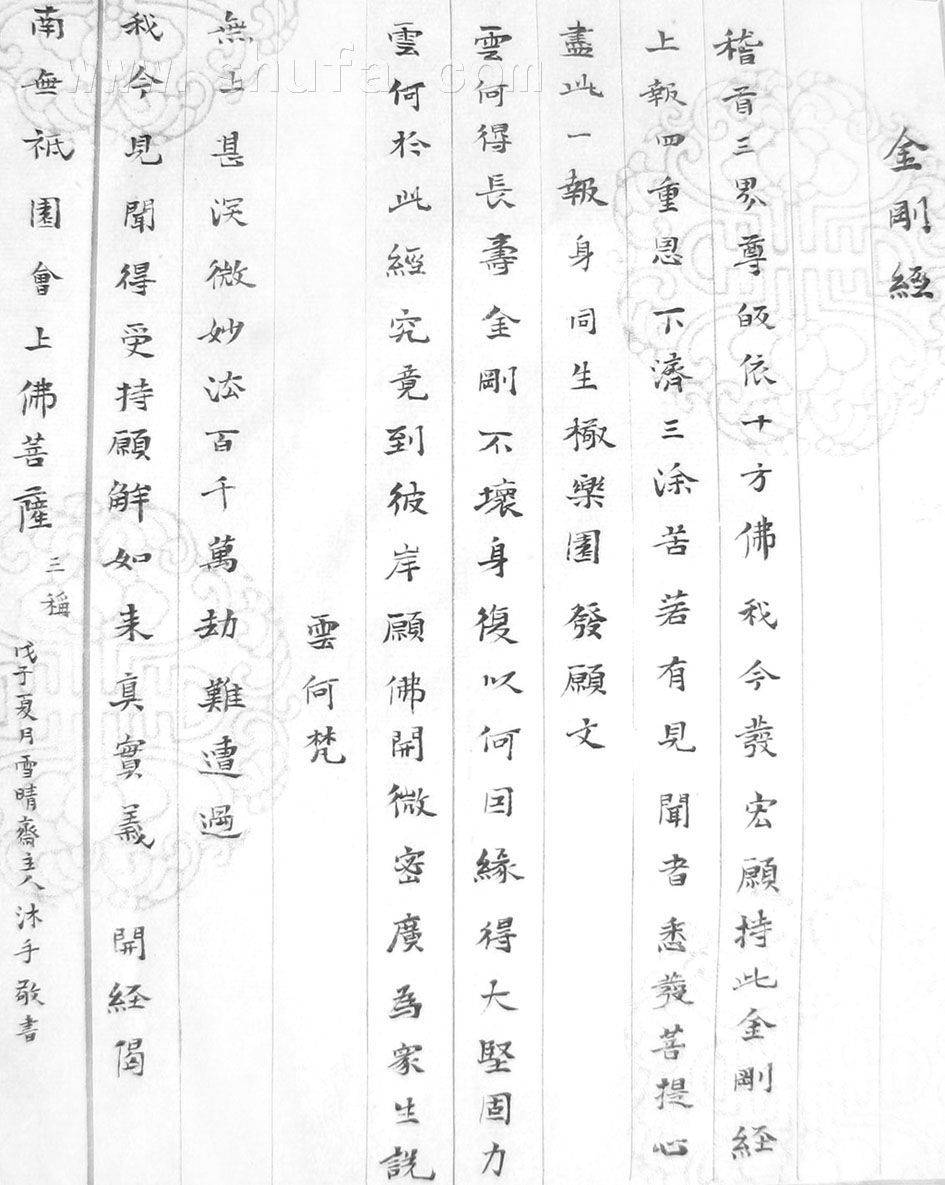 金剛經
稽首三界尊皈依十方佛我今發宏願持此金剛經
上報四重恩下濟三涂苦若有見聞者悉發菩提心
盡此一報身同生極樂國 發願文
雲何得長壽金剛不壞身復以何因緣得大堅固力
雲何於此經究竟到彼岸願佛開微密廣為眾生說
雲何梵
無上甚深微妙法百千萬劫難遭遇
我今見聞得受持願解如来真實義 開經偈
南無祇園會上佛菩薩 三稱 戊子夏月雪晴齋主人沐手敬書
www.shufa.com